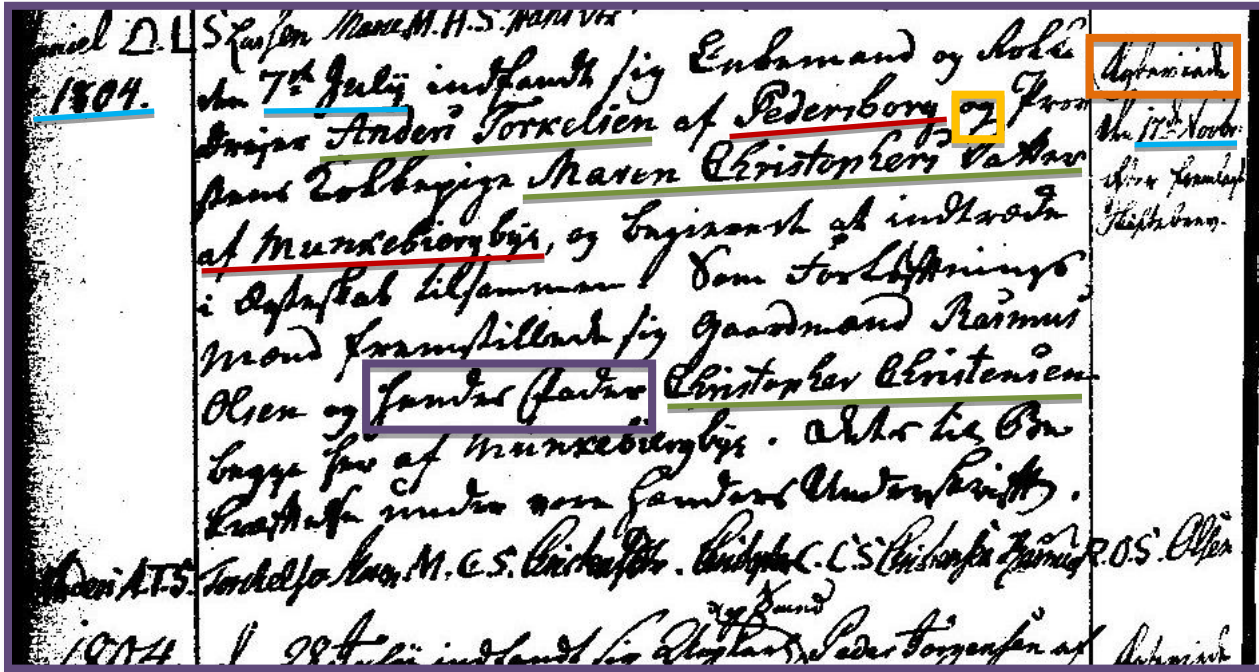 Daniel D. L. S. Larsen Maren M. H. S. Hansdtr
1804. den 7de Julÿ indfandt sig Enkemand og Rokke
dreÿer Anders Torkelsen af Pedersborg og Pron
stens Kokkepige Maren Christophers Datter
af Munkebiergbÿe, og begierede at indtræde
i Ægteskab tilsammen. Som Forlovnings
mænd fremstillede sig Gaardmænd Rasmus
Olsen og hendes Fader Christopher Christensen
begge her af Munkebiergbÿe. Dette til Be
kræftelse under vore Hænders Underskrift.
Anders A.T.S. Torckelsen Maren M.C.S. Christophdtr. Christopher C.C.S. Christensen Rasmus R.O.S. Olsen
1804. d. 28 Julÿ indfandt sig Peder Jørgensen af
Svend
Copulerede
den 17de Novbr.
efter fremlagt
Skiftebrev.
Copulerede